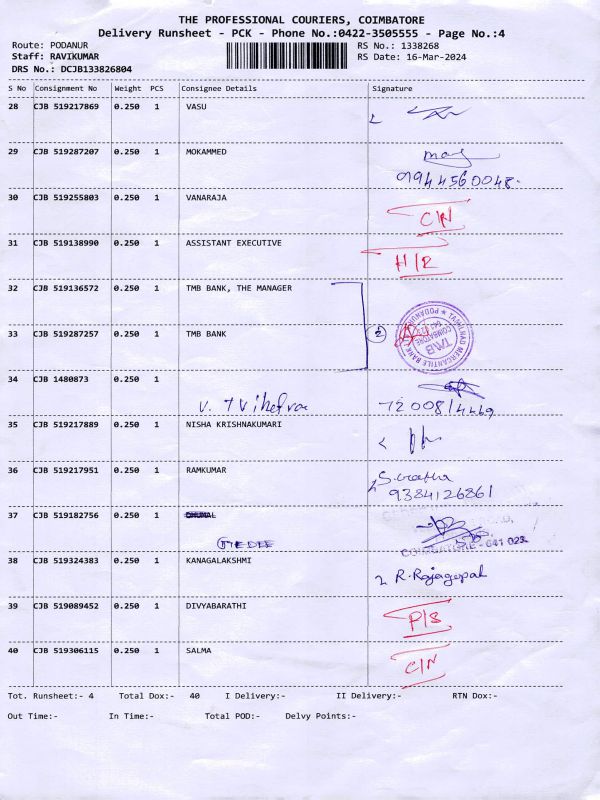 THE PROFESSIONAL COURIERS, COIMBATORE
Delivery Runsheet - PCK - Phone No.:0422-3505555 - Page No.:4
Route: PODANUR RS No.: 1338268
Staff: RAVIKUMAR RS Date: 16-Mar-2024
DRS No.: DCJB133826804
S No Consignment No Weight PCS Consignee Details Signature
28 CJB 519217869 0.250 1 VASU
29 CJB 519287207 0.250 1 MOKAMMED
09944560048.
30 CJB 519255803 0.250 1 VANARAJA
C/N
31 CJB 519138990 0.250 1 ASSISTANT EXECUTIVE
H/R
32 CJB 519136572 0.250 1 TMB BANK, THE MANAGER
33 CJB 519287257 0.250 1 TMB BANK 2
TAMILNAD MERCANTILE BANK PODANUR TMB COIMBATORE
34 CJB 1480873 0.250 1
35 CJB 519217889 0.250 1 NISHA KRISHNAKUMARI
36 CJB 519217951 0.250 1 RAMKUMAR
9384126861
37 CJB 519182756 0.250 1
COIMBATORE - 641 023
38 CJB 519324383 0.250 1 KANAGALAKSHMI R. Rajagopal
39 CJB 519089452 0.250 1 DIVYABARATHI
P/S
40 CJB 519306115 0.250 1 SALMA
C/N
Tot. Runsheet:- 4 Total Dox:- 40 I Delivery:- II Delivery:- RTN Dox:-
Out Time:- In Time:- Total POD:- Delvy Points:-